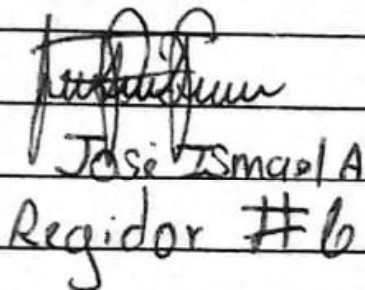 José Ismael A
Regidor #6